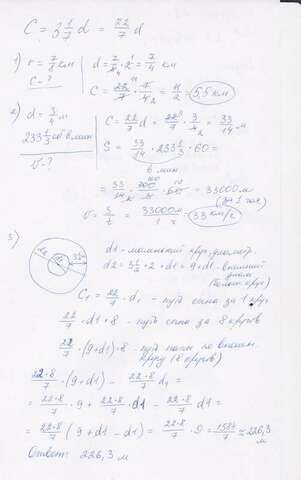 C = 3 1/7 d = 22/7 d
1) r = 7/8 км d = 7/8 · 2 = 7/4 км
C = ? C = 22/7 · 7/4 = 11/2 = 5,5 км
2) d = 3/4 м C = 22/7 d = 22/7 · 3/4 = 33/14 м
233 1/3 об в мин S = 33/14 · 233 1/3 · 60 =
v - ? в мин
= 33/14 · 700/3 · 60 = 33000 м
(за 1 час)
v = S/t = 33000 м / 1 ч = 33 км/ч
3) d1 - маленький круг, диаметр.
d2 = · 2 + d1 = 9 + d1 - внешний
диам
C1 = 22/7 · d1 - путь сына за 1 круг
22/7 · d1 · 8 - путь сына за 8 кругов
22/7 · (9+d1) · 8 - путь по внешн.
кругу (8 кругов)
22·8/7 · (9+d1) - 22·8/7 d1 =
= 22·8/7 · 9 + 22·8/7 · d1 - 22·8/7 d1 =
= 22·8/7 (9 + d1 - d1) = 22·8/7 · 9 = 1584/7 ≈ 226,3
м
Ответ: 226,3 м